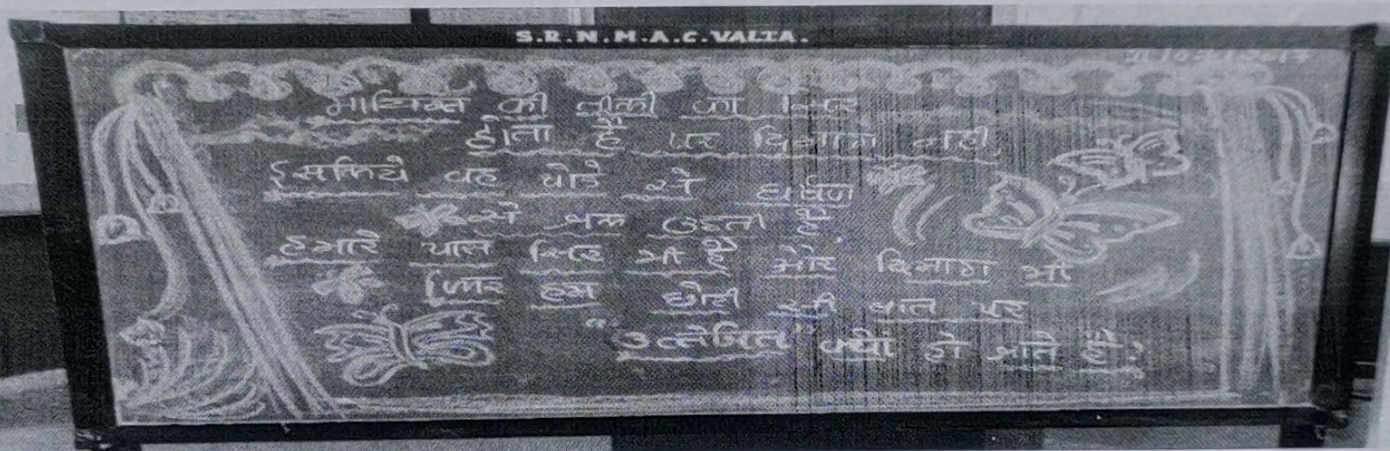 S.R.N.M.A.C. VALIA.
माचिस की तीली का सिर
होता है पर दिमाग नही
इसलिये वह थोडे से घर्षण
से जल उठती है.
हमारे पास सिर भी है और दिमाग भी
फिर हम छोटी सी बात पर
"उत्तेजित" क्यों हो जाते है?